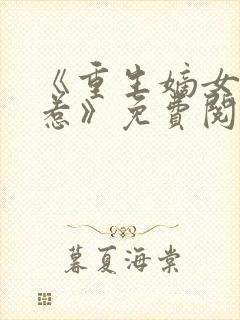 《重生嫡女
惹》免費閱
暮夏海棠